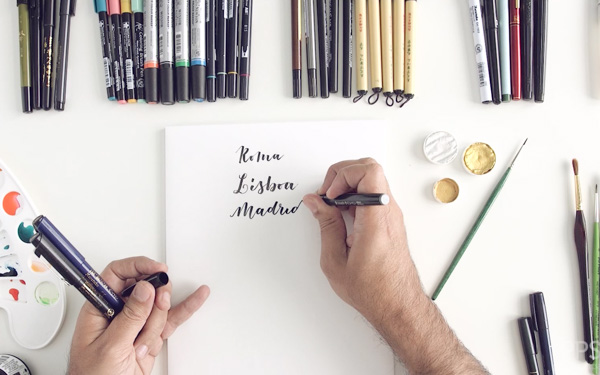 Roma
Lisboa
Madrid